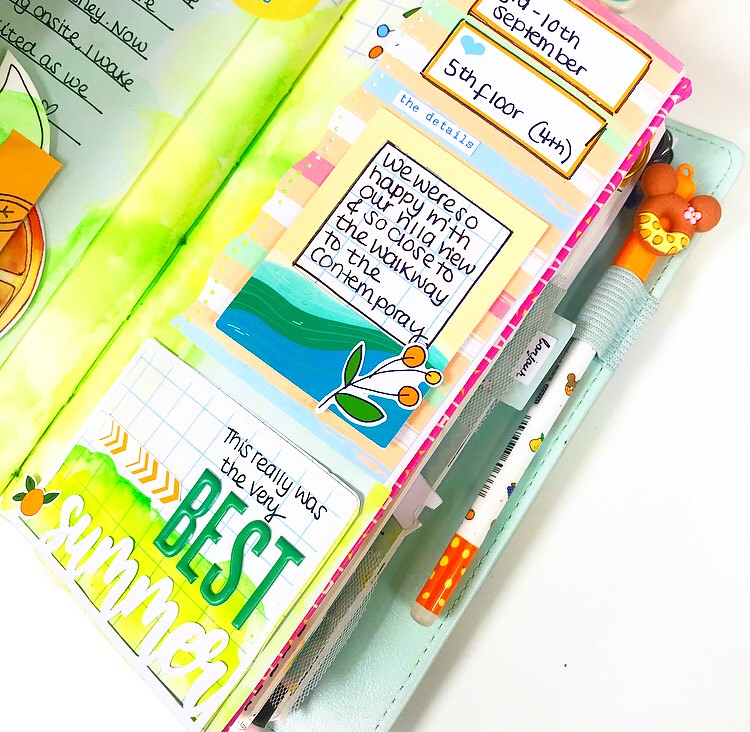 ney. Now
g onsite, I wake
ited as we
3rd - 10th
September
5th floor (4th)
the details
we were so
happy with
our villa new
& so close to
the walkway
to the
contemporary
This really was
the very
BEST
summer
bonjour